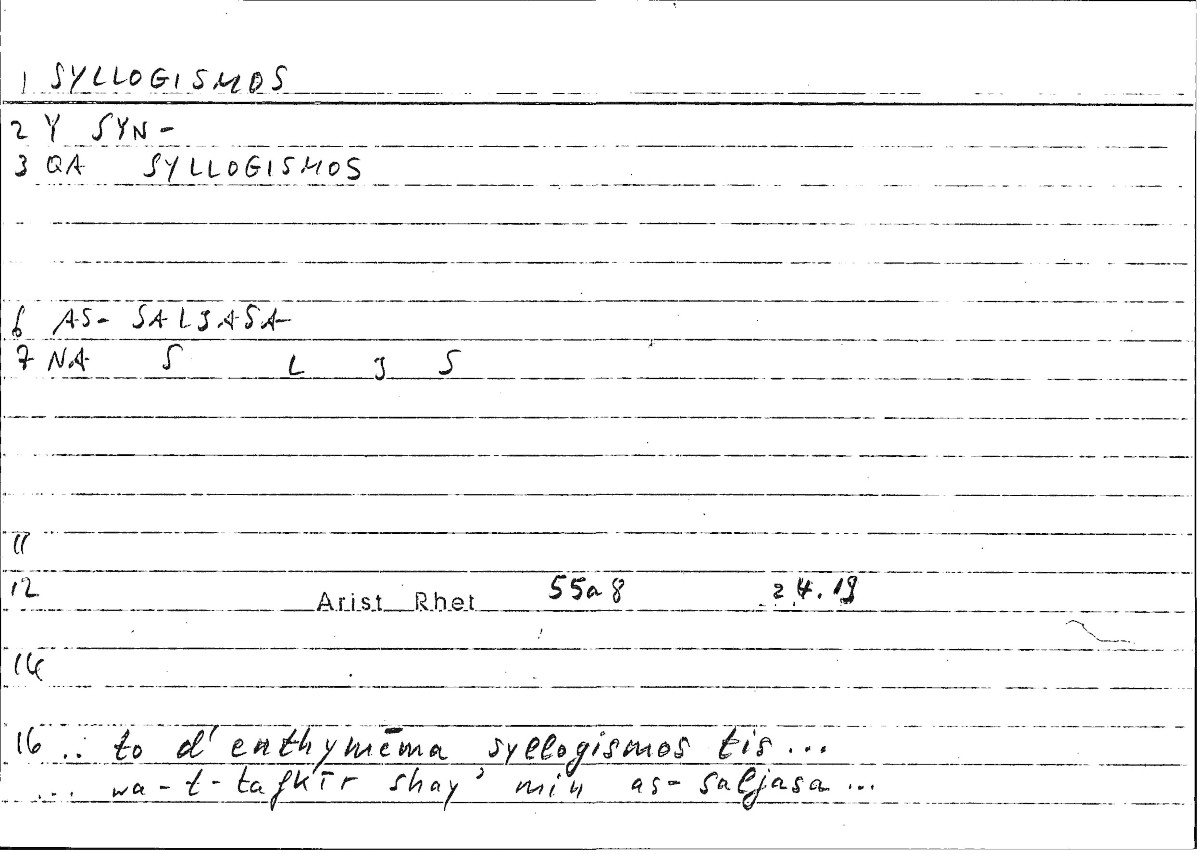 1 SYLLOGISMOS
2 Y SYN-
3 QA SYLLOGISMOS
6 AS- SALJASA
7 NA S L J S
11
12 Arist Rhet 55a8 24.19
14
16 .. to d'enthymēma syllogismos tis...
... wa-t-tafkīr shay' min as-saljasa...